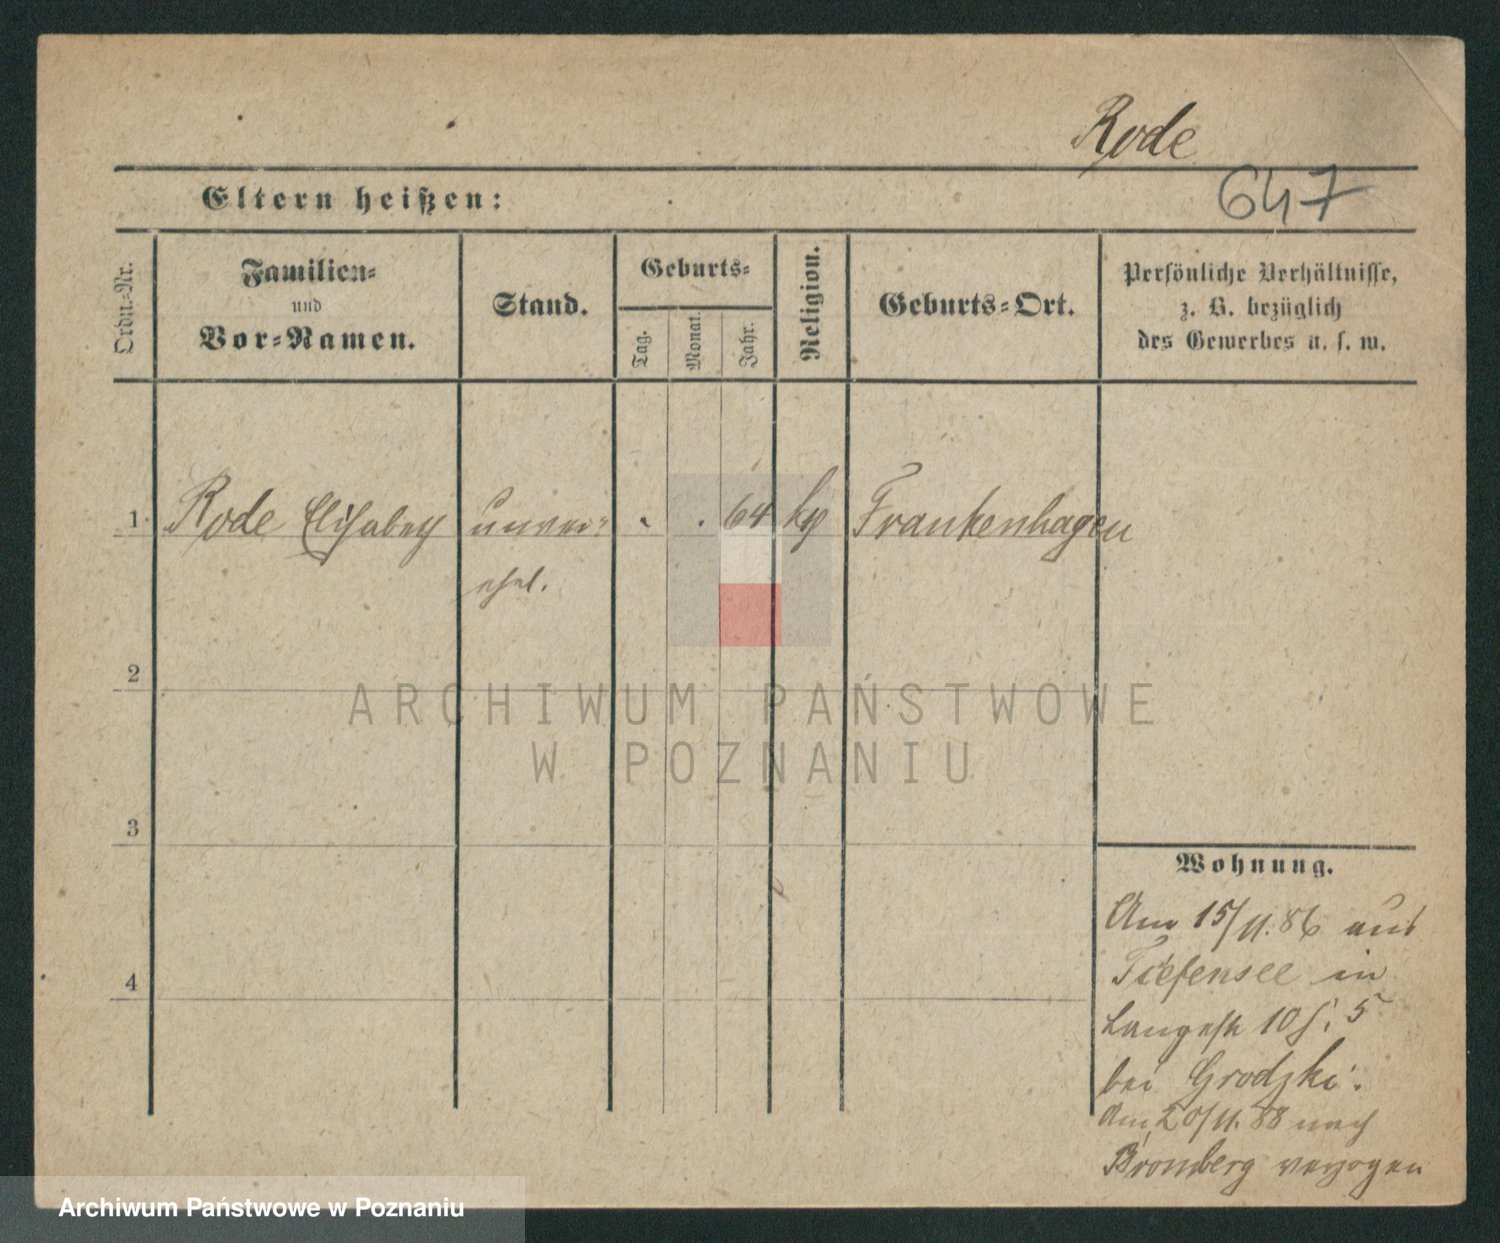 Rode
647
Eltern heißen:
Ordn.-Nr.
Familien-
und
Vor-Namen.
Stand.
Geburts-
Tag.
Monat.
Jahr.
Religion.
Geburts-Ort.
Persönliche Verhältnisse,
z. B. bezüglich
des Gewerbes u. s. w.
1 Rode Elisabeth unver= . . 64 Frankenhagen
ehel.
2
3
4
Wohnung.
Am 15/11.86 aus
Tiefensee in
Langestr 10
bei Grodzki.
Am 20/11.88 nach
Bromberg verzogen
ARCHIWUM PAŃSTWOWE
W POZNANIU
Archiwum Państwowe w Poznaniu